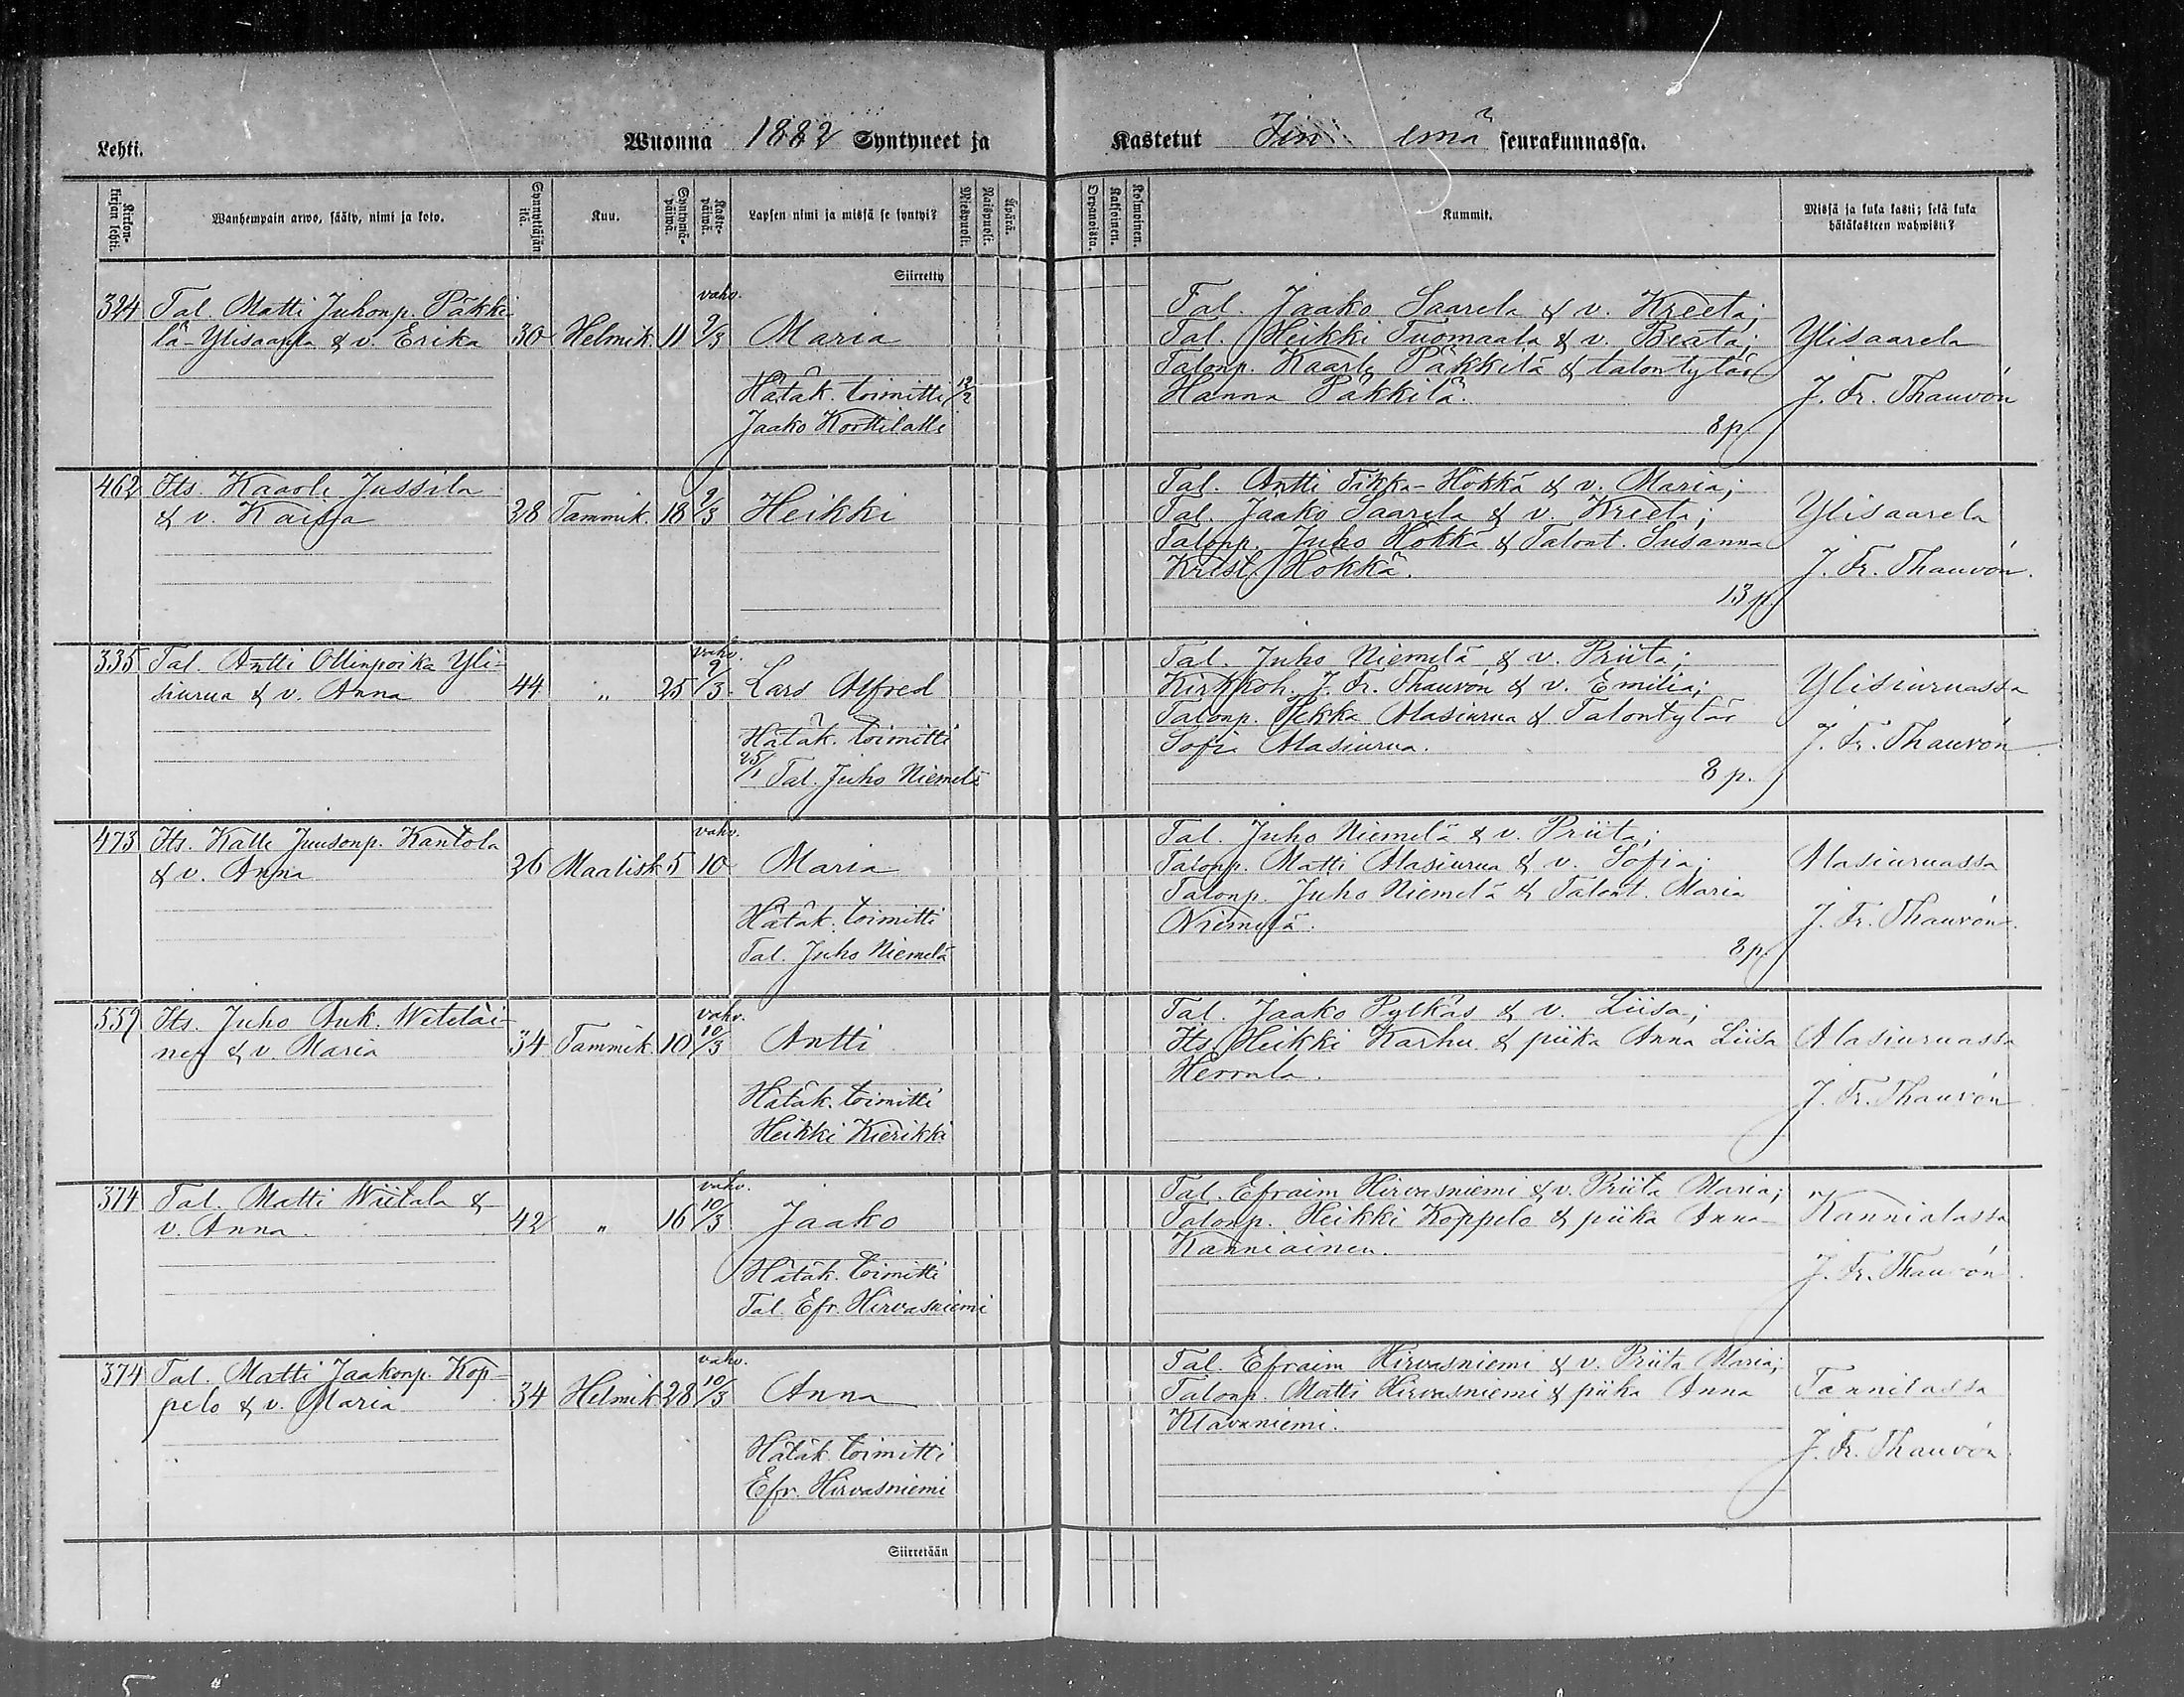 Lehti.
Wuonna 1882 Syntyneet ja
Kastetut Iin emä seurakunnassa.
Kirkonkirjan lehti.
Wanhempain arwo, sääty, nimi ja koto.
Synnyttäjän ikä.
Kuu.
Syntymäpäiwä.
Kastepäiwä.
Lapsen nimi ja missä se syntyi?
Miespuoli.
Naispuoli.
Äpärä.
Kaksoinen.
Kolmoinen.
Kummit.
Missä ja kuka kasti; sekä kuka hätäkasteen wahwisti?
Siirretty
324 Tal. Matti Juhonp. Päkki-
lä-Ylisaarela & v. Erika 30 Helmik. 11 vahv. 9/3 Maria
Hätäk. toimitti 12/2
Jaako Korttilalle
Tal. Jaako Saarela & v. Kreeta;
Tal. Heikki Tuomaala & v. Beata;
Talonp. Kaarle Päkkilä & talontytär
Hanna Päkkilä.
8 p.
Ylisaarela
J. Fr. Thauvón
462 Its. Kaarle Jussila
& v. Kaisa 38 Tammik. 18 9/3 Heikki
Tal. Antti Tikka-Hökkä & v. Maria;
Tal. Jaako Saarela & v. Kreeta;
Talonp. Juho Hökkä & Talont. Susanna
Krist. Hökkä.
13 p.
Ylisaarela
J. Fr. Thauvón.
335 Tal. Antti Ollinpoika Yli-
siurua & v. Anna 44 " 25 vahv. 9/3 Lars Alfred
Hätäk. toimitti
25/1 Tal. Juho Niemelä
Tal. Juho Niemelä & v. Priita;
Kirkkoh. J. Fr. Thauvón & v. Emilia;
Talonp. Hekka Alasiurua & Talontytär
Sofia Alasiurua.
8 p.
Ylisiuruassa
J. Fr. Thauvón.
473 Its. Kalle Juusonp. Kantola
& v. Anna 26 Maalisk 5 vahv. 10 Maria
Hätäk. toimitti
Tal. Juho Niemelä
Tal. Juho Niemelä & v. Priita;
Talonp. Matti Alasiurua & v. Sofia;
Talonp. Juho Niemelä & Talont. Maria
Niemelä.
8 p.
Alasiuruassa
J. Fr. Thauvón.
557 Its. Juho Ank. Weteläi-
nen & v. Maria 34 Tammik. 10 vahv. 10/3 Antti
Hätäk. toimitti
Heikki Kierikki
Tal. Jaako Pylkäs & v. Liisa;
Its. Heikki Karhu & piika Anna Liisa
Herrala.
Alasiuruassa
J. Fr. Thauvón
374 Tal. Matti Wiitala &
v. Anna. 42 " 16 vahv. 10/3 Jaako
Hätäk. toimitti
Tal. Efr. Hirvasniemi
Tal. Efraim Hirvasniemi & v. Priita Maria;
Talonp. Heikki Koppelo & piika Anna
Kanniainen.
Kannialassa
J. Fr. Thauvón.
374 Tal. Matti Jaakonp. Kop-
pelo & v. Maria 34 Helmik 28 vahv. 10/3 Anna
Hätäk. toimitti
Efr. Hirvasniemi
Tal. Efraim Hirvasniemi & v. Priita Maria;
Talonp. Matti Hirvasniemi & piika Anna
Klavuniemi.
Tannilassa
J. Fr. Thauvón.
Siirretään